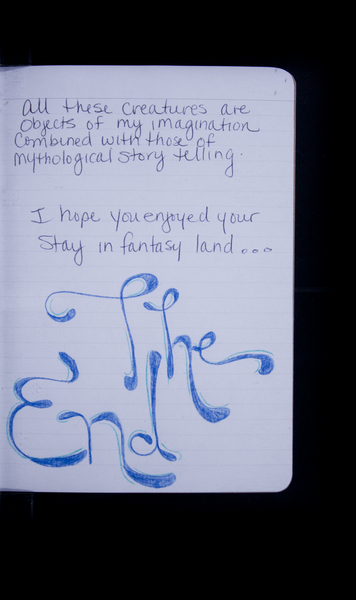 All these creatures are
Objects of my imagination
Combined with those of
mythological story telling.
I hope you enjoyed your
Stay in fantasy land...
The
End